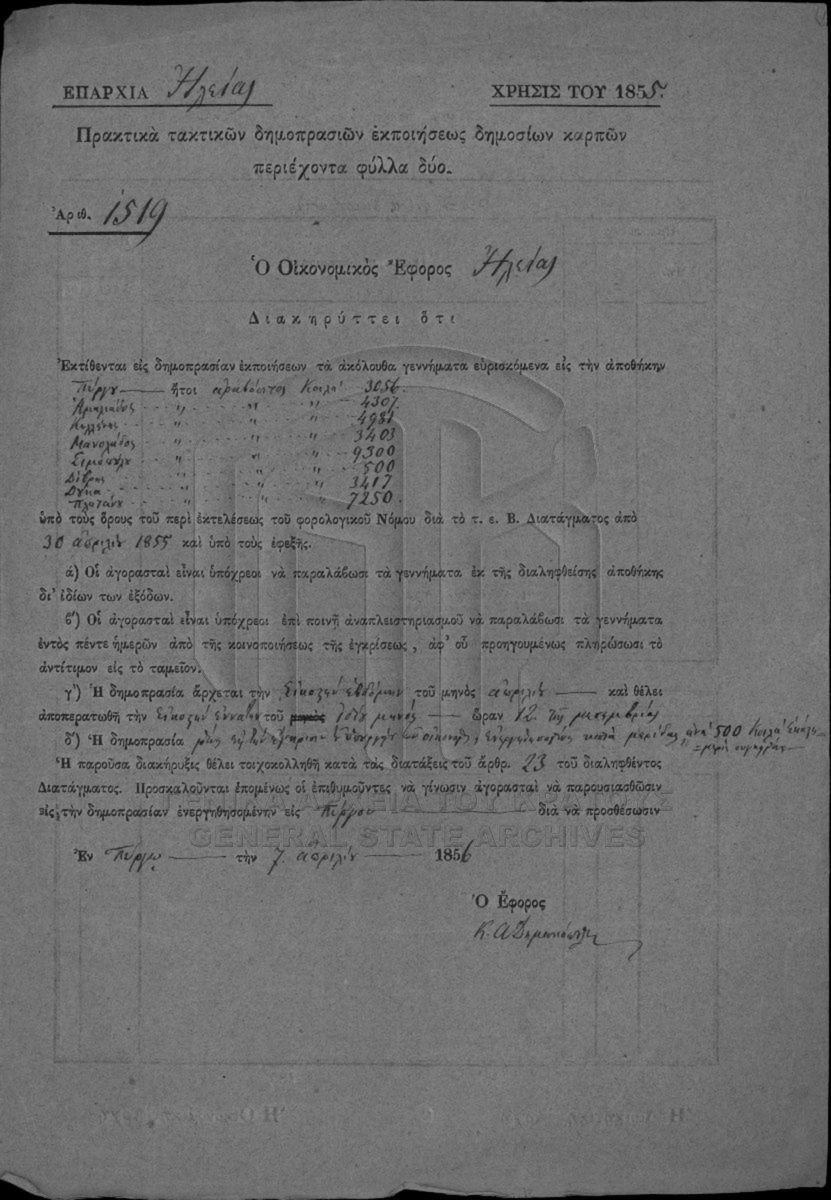 ΕΠΑΡΧΙΑ Ἠλείας
ΧΡΗΣΙΣ ΤΟΥ 1855.
Πρακτικὰ τακτικῶν δημοπρασιῶν ἐκποιήσεως δημοσίων καρπῶν
περιέχοντα φύλλα δύο.
Ἀριθ. 1519
Ὁ Οἰκονομικὸς Ἔφορος Ἠλείας
Διακηρύττει ὅτι
Ἐκτίθενται εἰς δημοπρασίαν ἐκποιήσεων τὰ ἀκόλουθα γεννήματα εὑρισκόμενα εἰς τὴν ἀποθήκην
Πύργου — ἤτοι ἀραβόσιτος Κοιλὰ 3056.
Ἀμαλιάδος " " " 4307
Κυλλήνης " " " 4981
Μανολάδος " " " 3403
Σιμοπούλου " " " 9300
Δίβρης " " " 500
Δούκα " " " 3417
Πλατάνου " " " 7250.
ὑπὸ τοὺς ὅρους τοῦ περὶ ἐκτελέσεως τοῦ φορολογικοῦ Νόμου διὰ τὸ τ. ε. Β. Διατάγματος ἀπὸ
30 ἀπριλίου 1855 καὶ ὑπὸ τοὺς ἐφεξῆς.
ά) Οἱ ἀγορασταὶ εἶναι ὑπόχρεοι νὰ παραλάβωσι τὰ γεννήματα ἐκ τῆς διαληφθείσης ἀποθήκης
δι' ἰδίων των ἐξόδων.
β') Οἱ ἀγορασταὶ εἶναι ὑπόχρεοι ἐπὶ ποινῇ ἀναπλειστηριασμοῦ νὰ παραλάβωσι τὰ γεννήματα
ἐντὸς πέντε ἡμερῶν ἀπὸ τῆς κοινοποιήσεως τῆς ἐγκρίσεως, ἀφ' οὗ προηγουμένως πληρώσωσι τὸ
ἀντίτιμον εἰς τὸ ταμεῖον.
γ') Ἡ δημοπρασία ἄρχεται τὴν Εἰκοστὴν ἑβδόμην τοῦ μηνὸς ἀπριλίου — καὶ θέλει
ἀποπερατωθῆ τὴν Εἰκοστὴν ἐννάτην τοῦ ἰδίου μηνὸς — ὥραν 12 τῆς μεσημβρίας
δ') Ἡ δημοπρασία κατὰ μερίδας, ἀνὰ 500 Κοιλὰ
Ἡ παροῦσα διακήρυξις θέλει τοιχοκολληθῆ κατὰ τὰς διατάξεις τοῦ ἄρθρ. 23 τοῦ διαληφθέντος
Διατάγματος. Προσκαλοῦνται ἑπομένως οἱ ἐπιθυμοῦντες νὰ γίνωσιν ἀγορασταὶ νὰ παρουσιασθῶσιν
εἰς τὴν δημοπρασίαν ἐνεργηθησομένην εἰς Πύργον — διὰ νὰ προσθέσωσιν
Ἐν Πύργῳ — τὴν 7 ἀπριλίου — 1856
Ὁ Ἔφορος
GENERAL STATE ARCHIVES